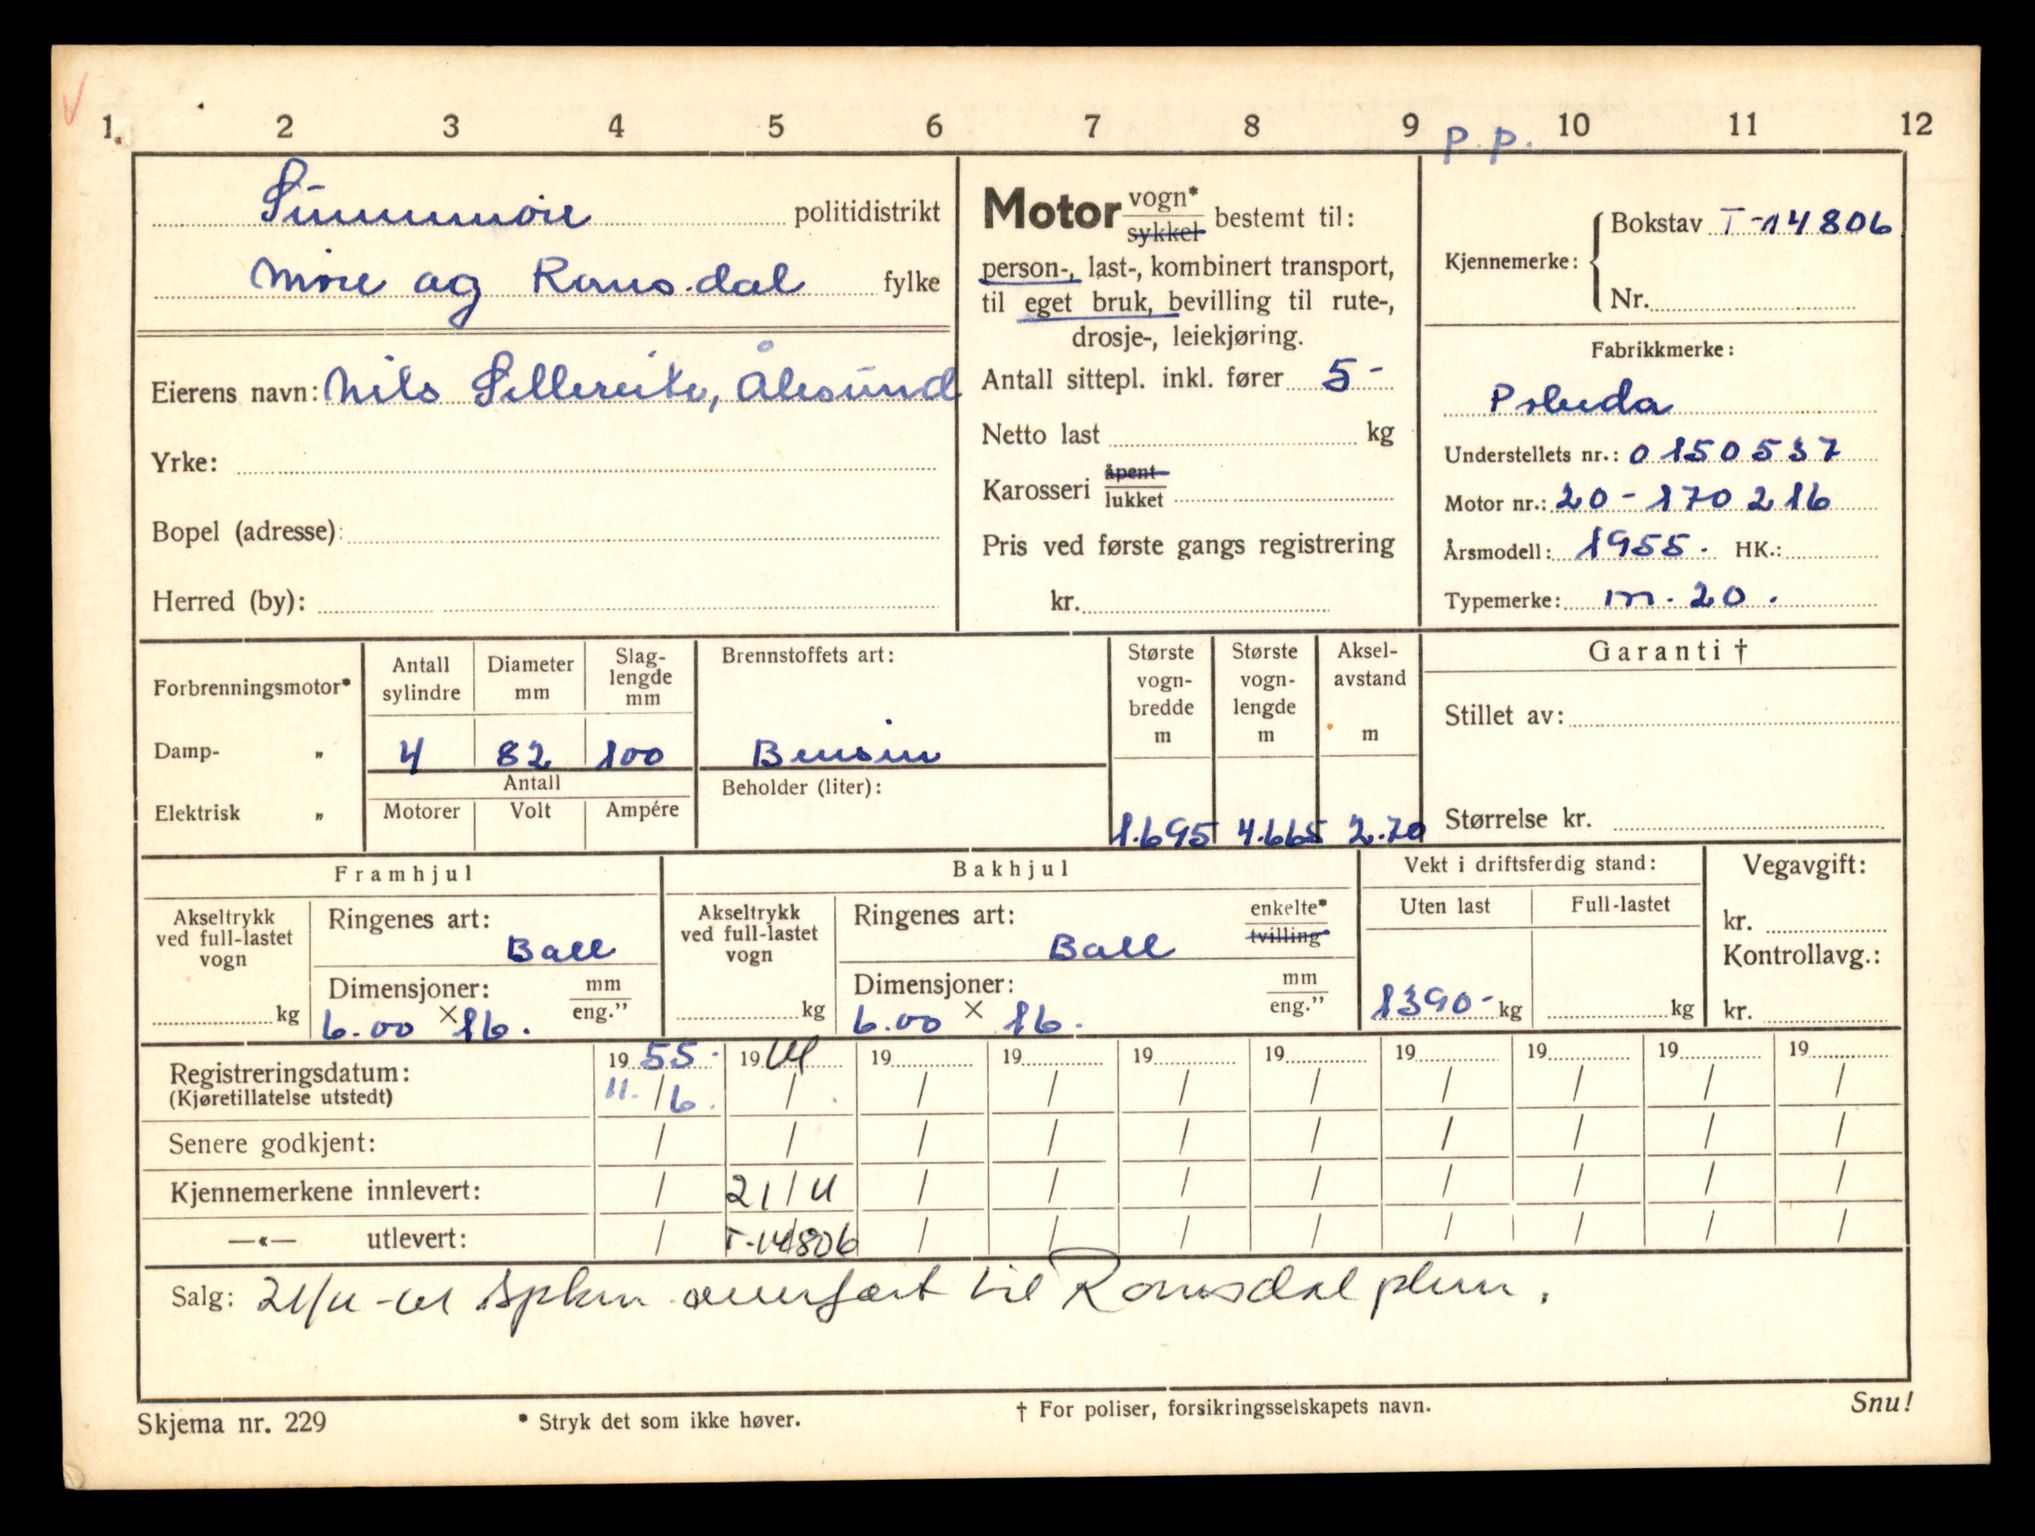 1. 2 3 4 5 6 7 8 9 10 11 12
P. P.
Sunnmøre politidistrikt
Møre og Romsdal fylke
Eierens navn: Nils Ålesund
Yrke:
Bopel (adresse):
Herred (by):
Motor vogn* / sykkel bestemt til:
person-, last-, kombinert transport,
til eget bruk, bevilling til rute-,
drosje-, leiekjøring.
Antall sittepl. inkl. fører 5 -
Netto last kg
Karosseri åpent / lukket
Pris ved første gangs registrering
kr.
Kjennemerke: Bokstav T-14806
Nr.
Fabrikkmerke:
Pobeda
Understellets nr.: 0150537
Motor nr.: 20-170216
Årsmodell: 1955. HK.:
Typemerke: m. 20.
Forbrenningsmotor*
Damp- „
Elektrisk „
Antall sylindre
4
Diameter mm
82
Slag-
lengde
mm
100
Antall
Motorer Volt Ampére
Brennstoffets art:
Bensin
Beholder (liter):
Største
vogn-
bredde
m
1.695
Største
vogn-
lengde
m
4.665
Aksel-
avstand
m
2.70
Garanti †
Stillet av:
Størrelse kr.
Framhjul
Akseltrykk
ved full-lastet
vogn
kg
Ringenes art:
Ball
Dimensjoner: mm / eng."
6.00 × 16.
Bakhjul
Akseltrykk
ved full-lastet
vogn
kg
Ringenes art: enkelte* / tvilling
Ball
Dimensjoner: mm / eng."
6.00 × 16.
Vekt i driftsferdig stand:
Uten last Full-lastet
1390- kg kg
Vegavgift:
kr.
Kontrollavg.:
kr.
Registreringsdatum: 19 55. 19 61 19 19 19 19 19 19 19 19
(Kjøretillatelse utstedt) 11. / 6. / / / / / / / / /
Senere godkjent: / / / / / / / / / /
Kjennemerkene innlevert: / 21 / 4 / / / / / / / /
—«— utlevert: / T-14806 / / / / / / / /
Salg: 21/4-61 overført til Romsdal
Skjema nr. 229
* Stryk det som ikke høver.
† For poliser, forsikringsselskapets navn.
Snu!